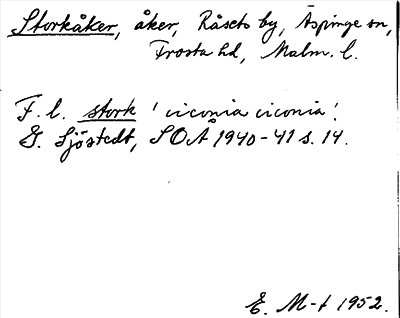 Storkåker, åker, Råsets by, Äspinge sn,
Frosta hd, Malm. l.
F. l. stork 'ciconia ciconia'.
G. Sjöstedt, SOÅ 1940-41 s. 14.
E. M-t 1952.